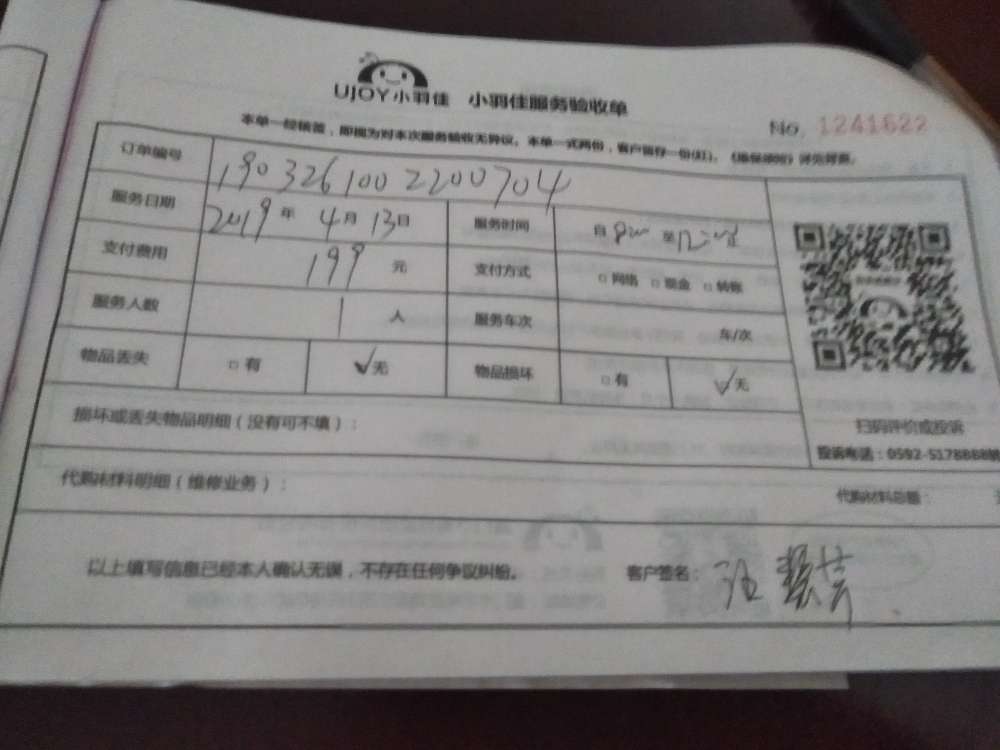 UJOY小羽佳 小羽佳服务验收单
No. 1241622
本单一经核签，即视为对本次服务验收无异议。本单一式两份，客户留存一份(红)。
订单编号 190326100 2200704
服务日期 2019年 4月 13日 服务时间 自 8:00 至 12:00止
支付费用 199 元 支付方式 □网络 □现金 □转账
服务人数 1 人 服务车次 车/次
物品丢失 □有 ✓无 物品损坏 □有 ✓无
扫码评价或投诉
损坏或丢失物品明细（没有可不填）：
投诉电话：0592-5178888
代购材料明细（维修业务）：
代购材料总额：
以上填写信息已经本人确认无误，不存在任何争议纠纷。 客户签名：